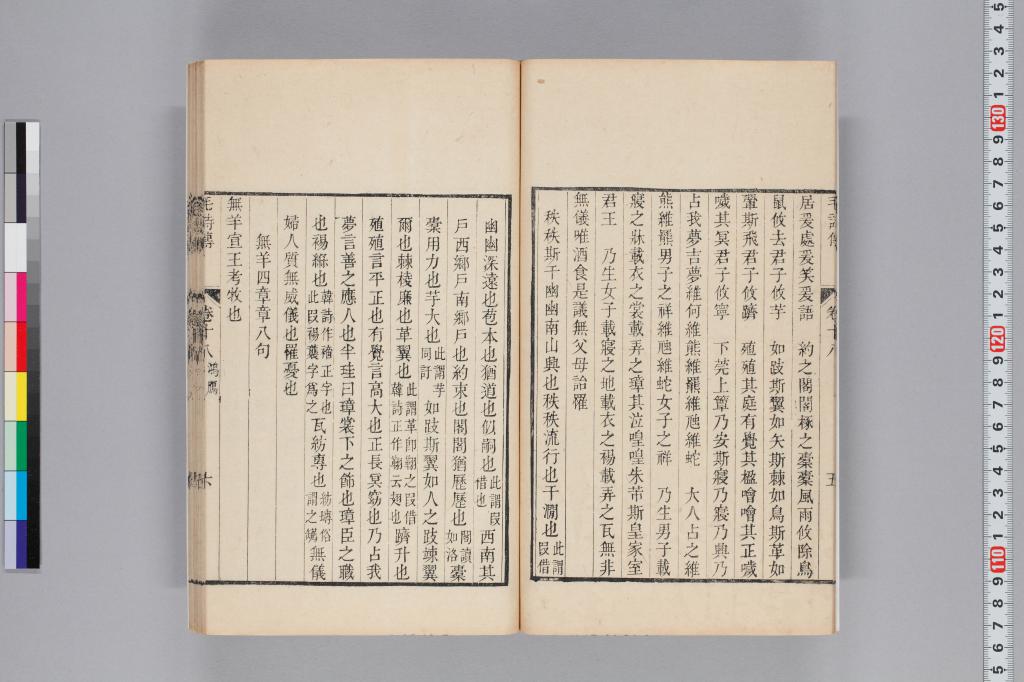 居爰處爰笑爰語　約之閣閣椓之橐橐風雨攸除鳥
鼠攸去君子攸芋　如跂斯翼如矢斯棘如鳥斯革如
翬斯飛君子攸躋　殖殖其庭有覺其楹噲噲其正噦
噦其冥君子攸寧　下莞上簟乃安斯寢乃寢乃興乃
占我夢吉夢維何維熊維羆維虺維蛇　大人占之維
熊維羆男子之祥維虺維蛇女子之祥　乃生男子載
寢之牀載衣之裳載弄之璋其泣喤喤朱芾斯皇家室
君王　乃生女子載寢之地載衣之裼載弄之瓦無非
無儀唯酒食是議無父母詒罹
秩秩斯干幽幽南山興也秩秩流行也干澗也此謂叚借
幽幽深遠也苞本也猶道也似嗣也此謂叚借也西南其
戶西鄉戶南鄉戶也約束也閣閣猶歷歷也閣讀如洛橐
橐用力也芋大也此謂芋同訏如跂斯翼如人之跂竦翼
爾也棘棱廉也革翼也此謂革卽𩋾之叚借韓詩正作𩋾云翅也躋升也
殖殖言平正也有覺言高大也正長冥窈也乃占我
夢言善之應人也半珪曰璋裳下之飾也璋臣之職
也裼緥也韓詩作禘正字也此叚裼爲之瓦紡專也無儀
婦人質無威儀也罹憂也
無羊四章章八句
無羊宣王考牧也
毛詩傳
卷十八
鴻鴈
六
卷十八
五